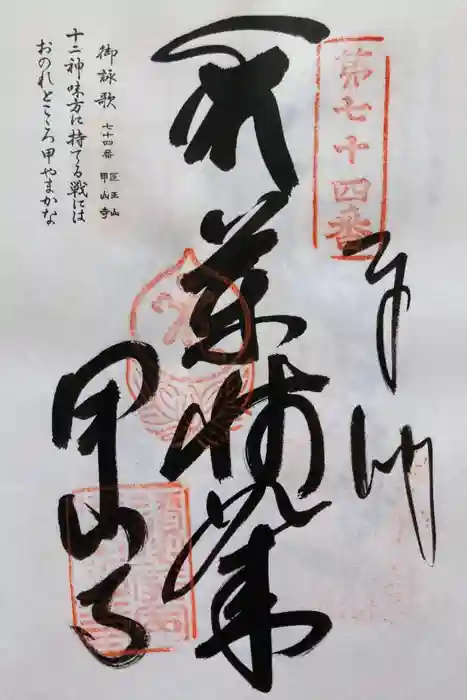 第七十四番
奉納
薬師如来
甲山寺
御詠歌 七十四番 医王山 甲山寺
十二神味方に持てる戦には
おのれとこゝろ甲やまかな